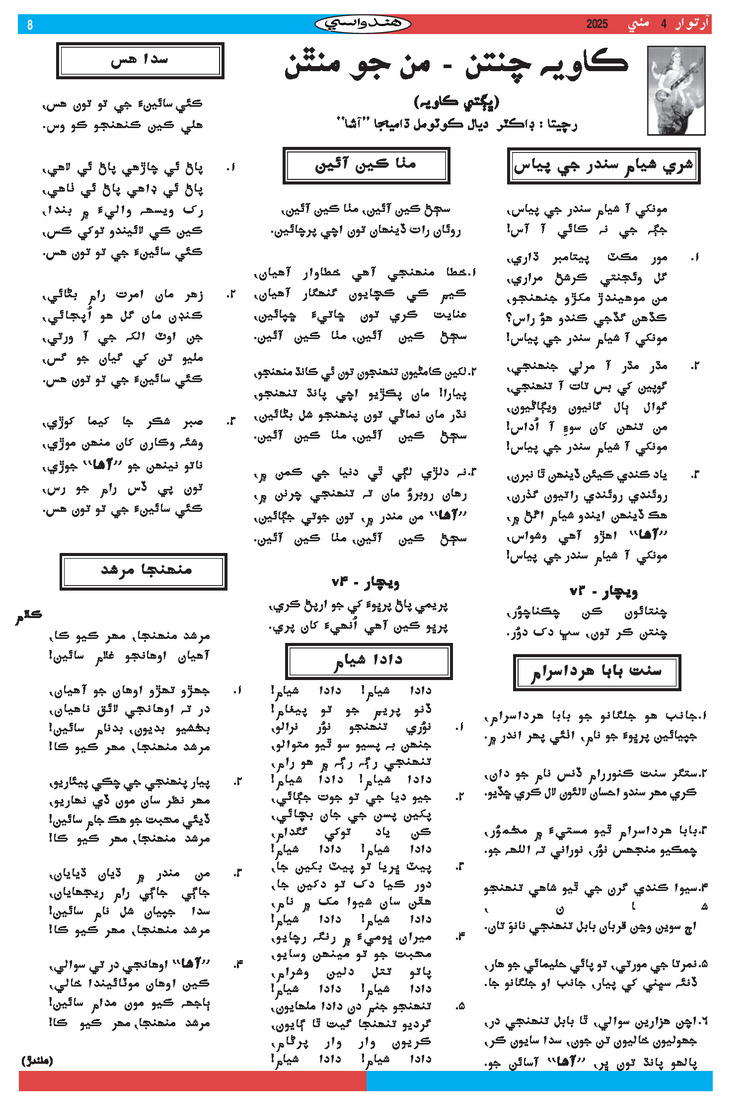 آرتوار 4 مئي 2025
هندواسي
8
ڪاويہ چنتن - من جو منٿن
(ڀڳتي ڪاويہ)
رچيتا : ڊاڪٽر ديال ڪوٽومل ڌاميڄا ”آشا“
شري شيام سندر جي پياس
مونکي آ شيام سندر جي پياس،
جڳہ جي نہ ڪائي آ آس!
۱. مور مڪٽ پيتامبر ڌاري،
گل وئجنتي ڪرشڻ مراري،
من موهيندڙ مکڙو جنھنجو،
ڪڏهن گڏجي ڪندو هوُ راس؟
مونکي آ شيام سندر جي پياس!
۲. مڌر مڌر آ مرلي جنھنجي،
گوپين کي بس تات آ تنھنجي،
گوال ٻال گانيون ويڳاڻيون،
من تنھن کان سوءِ آ اُداس!
مونکي آ شيام سندر جي پياس!
۳. ياد ڪندي ڪيئن ڏينھن ٿا نبرن،
روئندي روئندي راتيون گذرن،
هڪ ڏينھن ايندو شيام اڱڻ ۾،
”آشا“ اهڙو آهي وشواس،
مونکي آ شيام سندر جي پياس!
ويچار - ۷۳
چنتائون ڪن چڪناچوُر،
چنتن ڪر تون، سڀ دک دوُر.
سنت بابا هرداسرام
۱.جانب هو جلگانو جو بابا هرداسرام،
جپيائين پرڀوءَ جو نام، اٺئي پھر اندر ۾.
۲.ستگر سنت ڪنوررام ڏنس نام جو دان،
ڪري مھر سندو احسان لائون لال ڪري ڇڏيو.
۳.بابا هرداسرام ٿيو مستيءَ ۾ مخموُر،
چمڪيو منجھس نوُر، نوراني تہ اللهہ جو.
۴.سيوا ڪندي گرن جي ٿيو شاهي تنھنجو
شان،
اڄ سوين وڃن قربان بابل تنھنجي نانوَ تان.
۵.نمرتا جي مورتي، تو پائي حليمائي جو هار،
ڏنئہ سڀني کي پيار، جانب او جلگانو جا.
۶.اچن هزارين سوالي، ٿا بابل تنھنجي در،
جھوليون خاليون تن جون، سدا سايون ڪر،
پالهو پاند تون ڀر، ”آشا“ آسائن جو.
مٺا ڪين آئين
سڄڻ ڪين آئين، مٺا ڪين آئين،
روئان رات ڏينھان تون اچي پرچائين.
۱.خطا منھنجي آهي خطاوار آهيان،
ڪيم کي ڪچايون گنھگار آهيان،
عنايت ڪري تون ڇاتيءَ ڇپائين،
سڄڻ ڪين آئين، مٺا ڪين آئين.
۲.لکين ڪامڻيون تنھنجون تون ئي ڪانڌ منھنجو،
پيارا! مان پڪڙيو اچي پاند تنھنجو،
نڌر مان نماڻي تون پنھنجو شل بڻائين،
سڄڻ ڪين آئين، مٺا ڪين آئين.
۳.نہ دلڙي لڳي ٿي دنيا جي ڪمن ۾،
رهان روبرو مان تہ تنھنجي چرنن ۾،
”آشا“ من مندر ۾، تون جوتي جڳائين،
سڄڻ ڪين آئين، مٺا ڪين آئين.
ويچار - ۷۴
پريمي پاڻ پرڀوءَ کي جو ارپڻ ڪري،
پرڀو ڪين آهي اُنھيءَ کان پري.
دادا شيام
دادا شيام! دادا شيام!
ڏنو پريم جو تو پيغام!
۱. نوُري تنھنجو نوُر نرالو،
جنھن بہ پسيو سو ٿيو متوالو،
تنھنجي رڳہ رڳہ ۾ هو رام،
دادا شيام! دادا شيام!
۲. جيو ديا جي تو جوت جڳائي،
پکين پسن جي جان بچائي،
ڪن ياد توکي گگدام،
دادا شيام! دادا شيام!
۳. پيٽ ڀريا تو پيٽ بکين جا،
دور ڪيا دک تو دکين جا،
هٿن سان شيوا مک ۾ نام،
دادا شيام! دادا شيام!
۴. ميران ڀوميءَ ۾ رنگہ رچايو،
محبت جو تو مينھن وسايو،
پاتو تتل دلين وشرام،
دادا شيام! دادا شيام!
۵. تنھنجو جنم دن دادا ملھايون،
گرديو تنھنجا گيت ٿا ڳايون،
ڪريون وار وار پرڻام،
دادا شيام! دادا شيام!
سدا هس
ڪٿي سائينءَ جي تو تون هس،
هلي ڪين ڪنھنجو ڪو وس.
۱. پاڻ ئي چاڙهي پاڻ ئي لاهي،
پاڻ ئي ڊاهي پاڻ ئي ٺاهي،
رک ويسھہ واليءَ ۾ بندا،
ڪين ڪي لائيندو توکي ڪس،
ڪٿي سائينءَ جي تو تون هس.
۲. زهر مان امرت رام بڻائي،
ڪنڊن مان گل هو اُپجائي،
جن اوٽ الکہ جي آ ورتي،
مليو تن کي گيان جو گس،
ڪٿي سائينءَ جي تو تون هس.
۳. صبر شڪر جا کيما کوڙي،
وشئہ وڪارن کان منھن موڙي،
ناتو نينھن جو ”آشا“ جوڙي،
تون پي ڏس رام جو رس،
ڪٿي سائينءَ جي تو تون هس.
منھنجا مرشد
ڪلام
مرشد منھنجا، مھر ڪيو ڪا،
آهيان اوهانجو غلام سائين!
۱. جھڙو تھڙو اوهان جو آهيان،
در تہ اوهانجي لائق ناهيان،
بخشيو بديون، بدنام سائين!
مرشد منھنجا، مھر ڪيو ڪا!
۲. پيار پنھنجي جي چڪي پيئاريو،
مھر نظر سان مون ڏي نھاريو،
ڏيئي محبت جو هڪ جام سائين!
مرشد منھنجا، مھر ڪيو ڪا!
۳. من مندر ۾ ڏيان ڏيايان،
جاڳي جاڳي رام ريجھايان،
سدا جپيان شل نام سائين!
مرشد منھنجا، مھر ڪيو ڪا!
۴. ”آشا“ اوهانجي در تي سوالي،
ڪين اوهان موٽائيندا خالي،
ٻاجھہ ڪيو مون مدام سائين!
مرشد منھنجا، مھر ڪيو ڪا!
(هلندڙ)